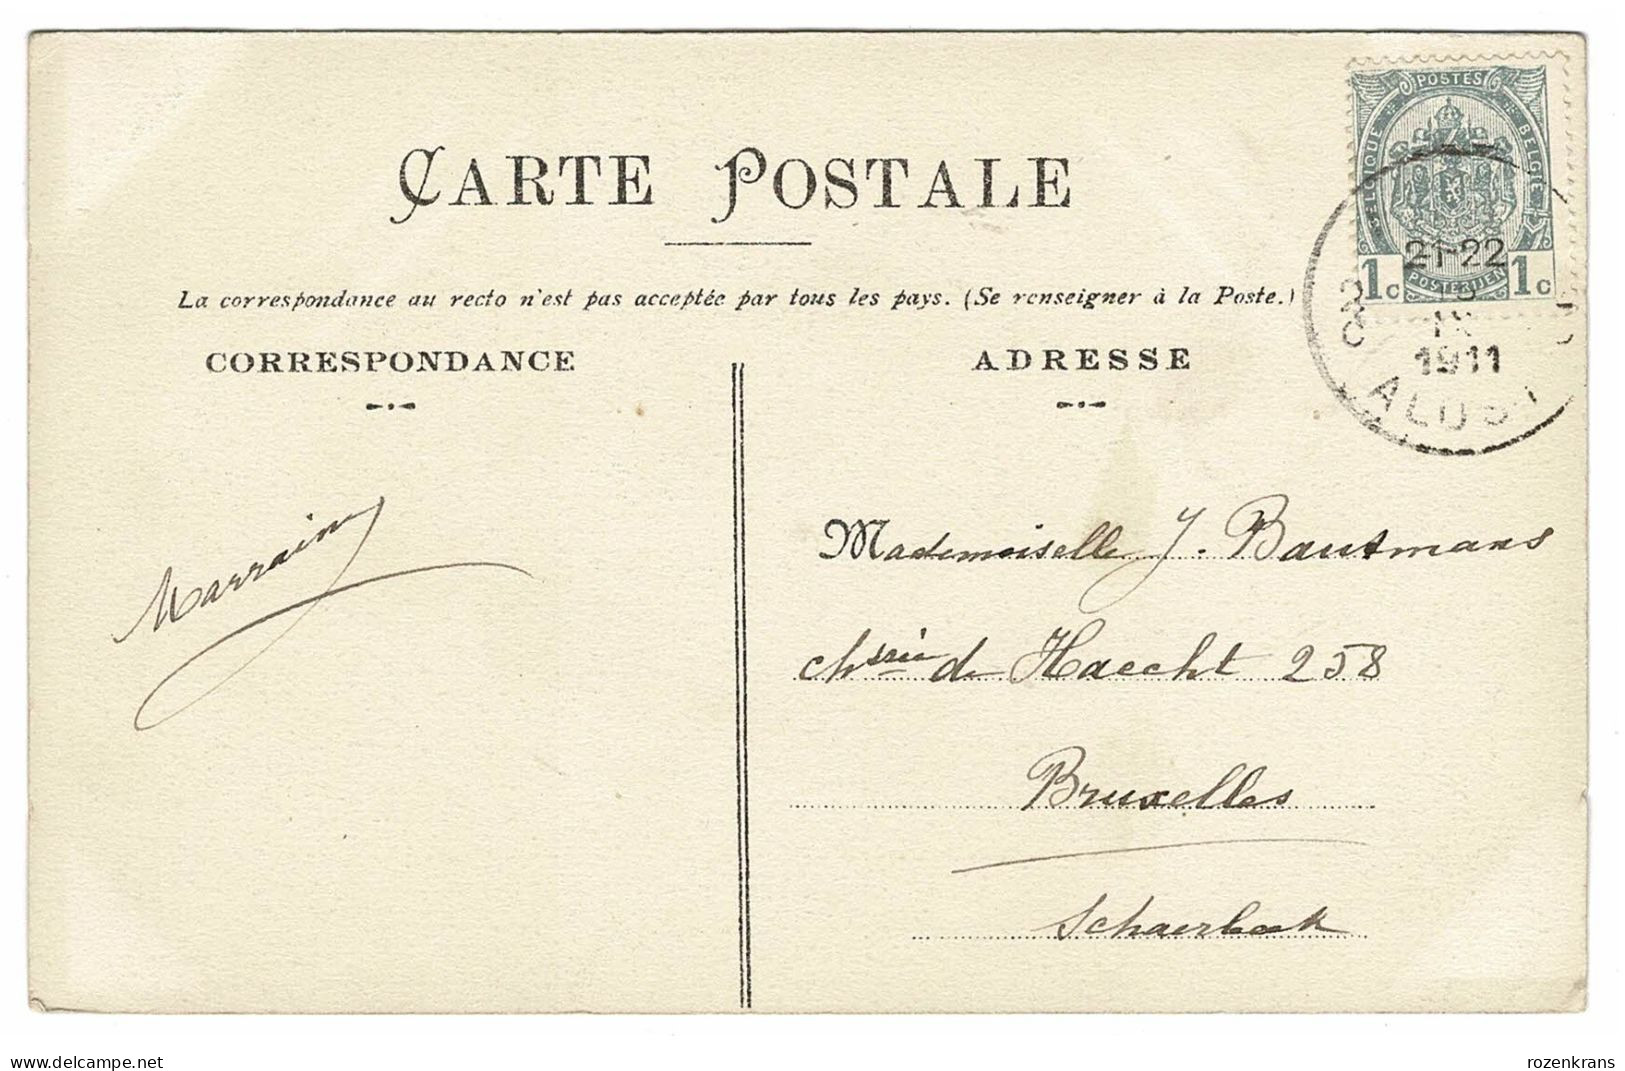 CARTE POSTALE
POSTES
BELGIQUE BELGIË
21-22
1c POSTERIJEN 1c
La correspondance au recto n'est pas acceptée par tous les pays. (Se renseigner à la Poste.)
1911
ALOST
CORRESPONDANCE
ADRESSE
Marraine
Mademoiselle J. Bautmans
chssée de Haecht 258
Bruxelles
Schaerbeek
delcampe.net
rozenkrans